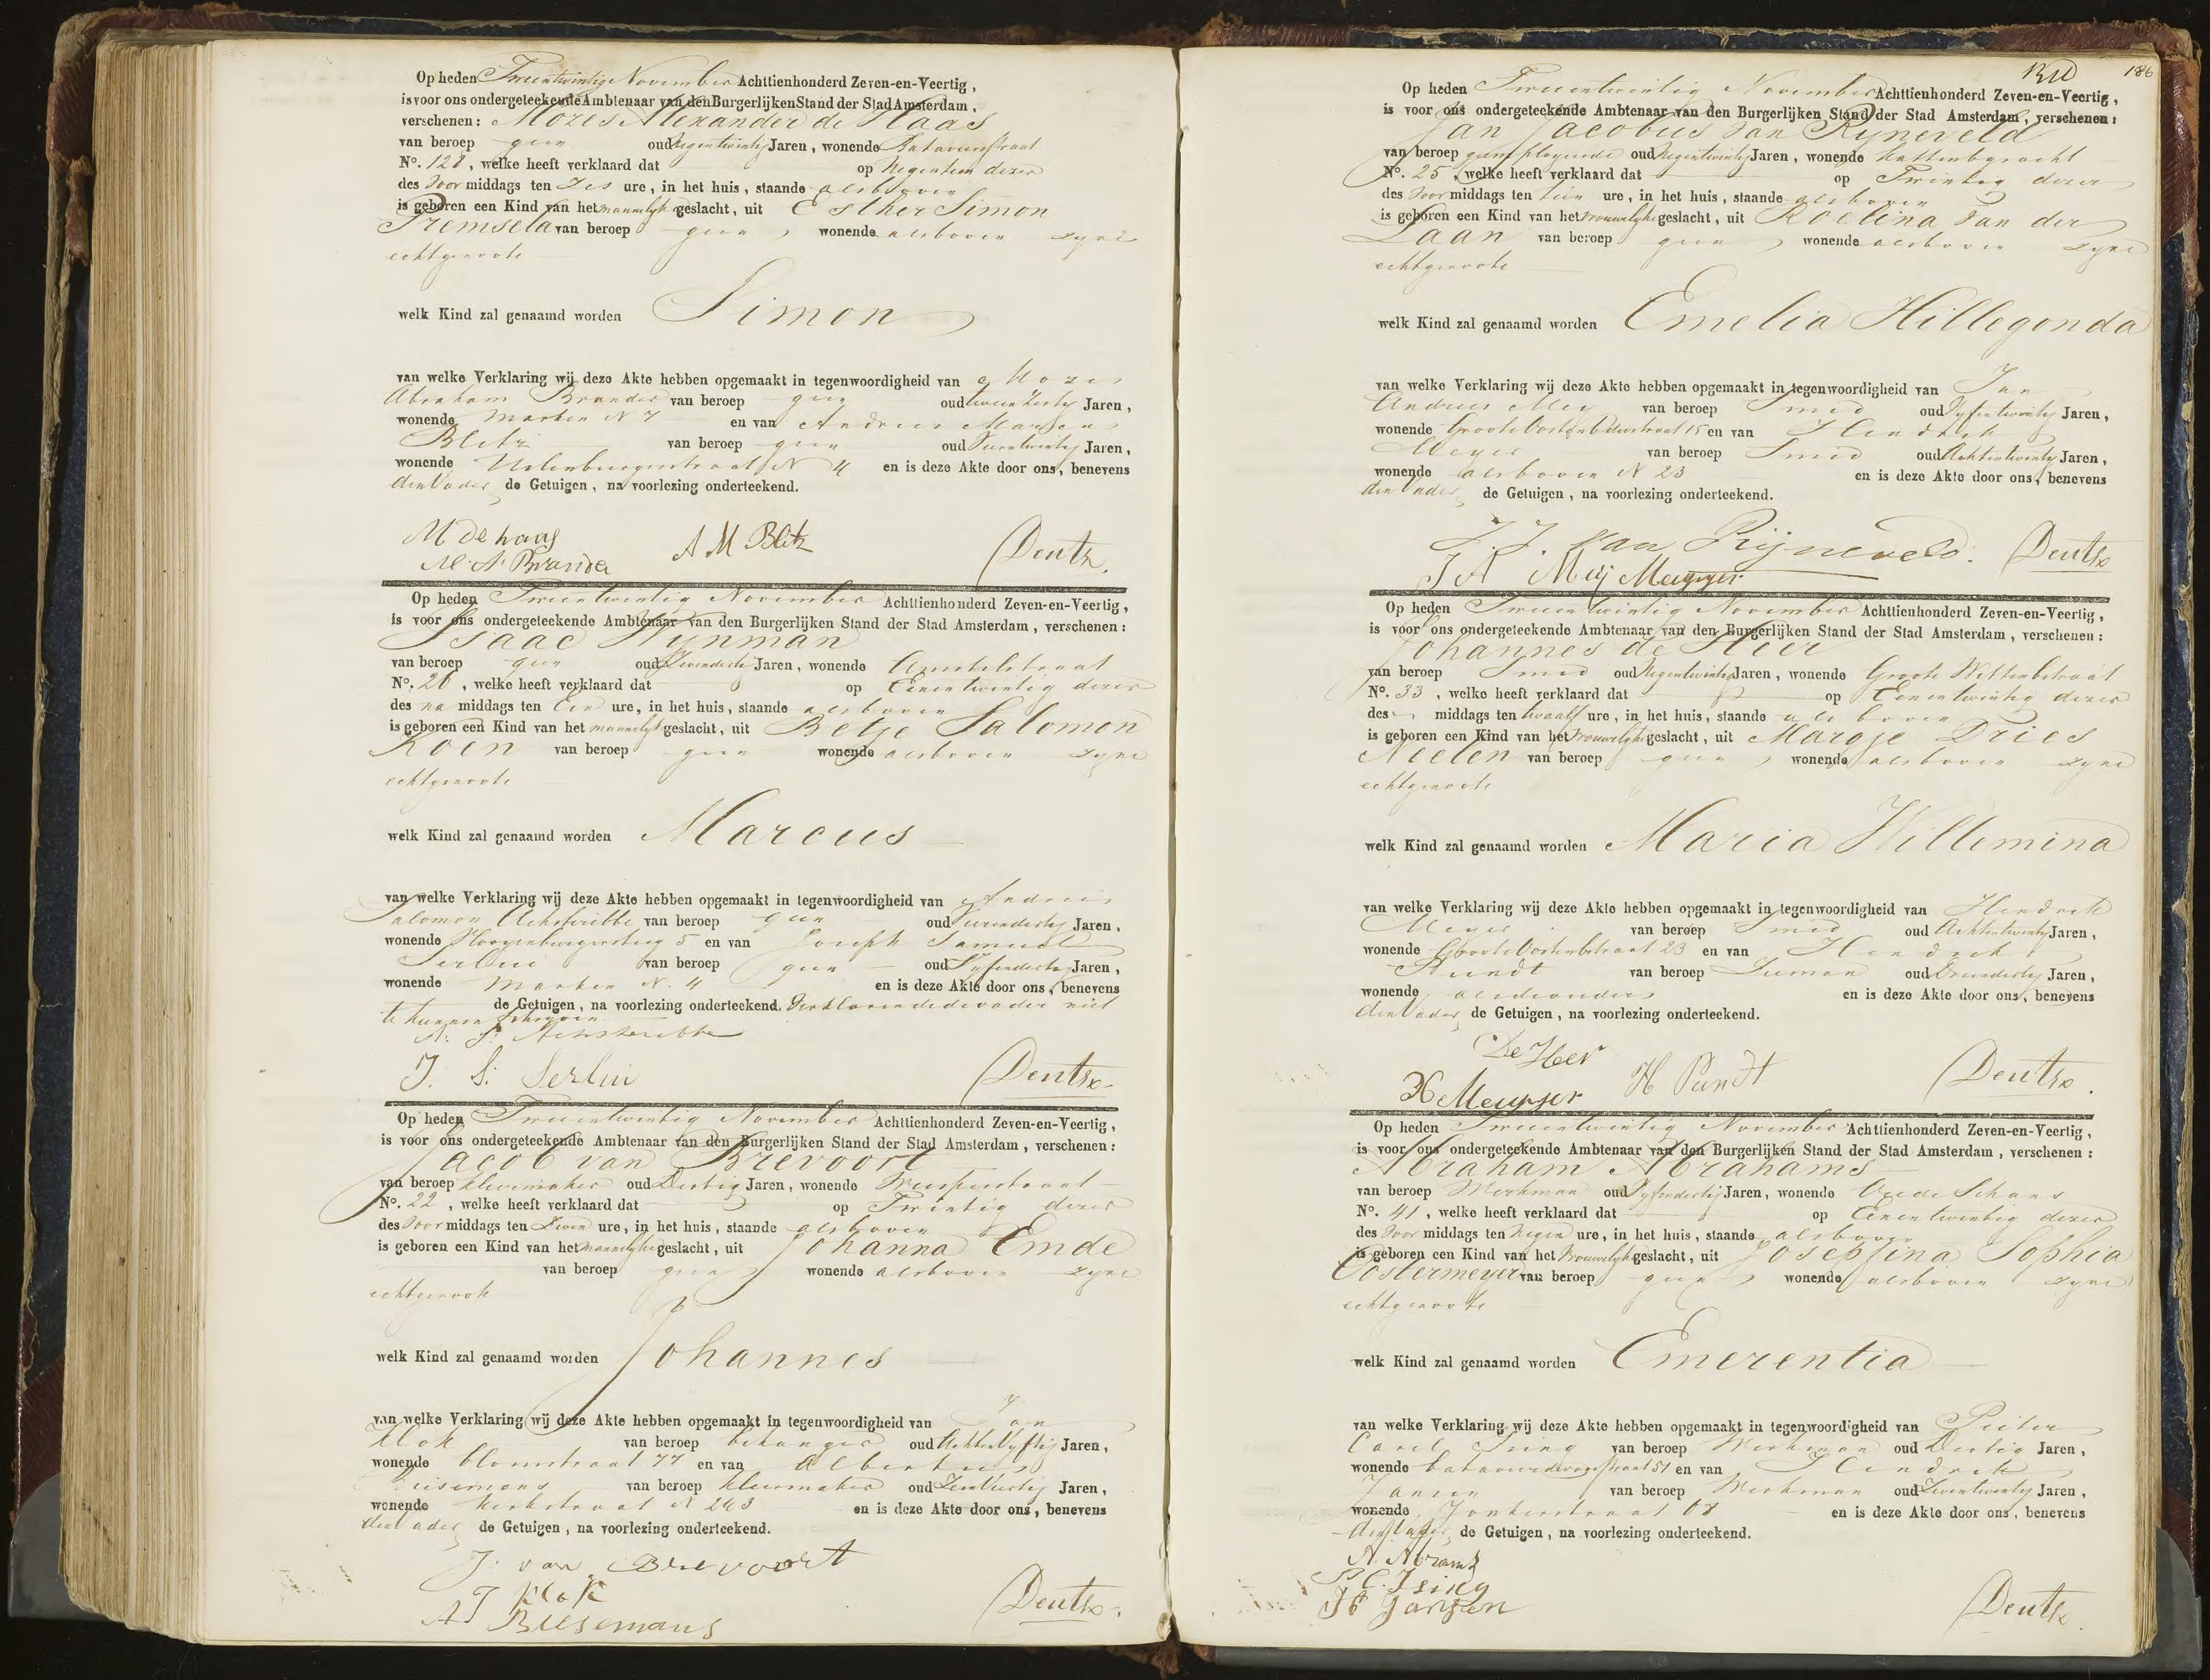 Op heden Tweentwintig November Achttienhonderd Zeven-en-Veertig,
is voor ons ondergeteekende Ambtenaar van den Burgerlijken Stand der Stad Amsterdam,
verschenen: Mozes Alexander de Haas
van beroep geen oud Negentwintig Jaren, wonende Batavierstraat
No. 128, welke heeft verklaard dat op Negentien dezer
des Voor middags ten Zes ure, in het huis, staande alsboven
is geboren een Kind van het mannelijk geslacht, uit Esther Simon
Premsela van beroep geen, wonende alsboven zyne
echtgenoote
welk Kind zal genaamd worden Simon
van welke Verklaring wij deze Akte hebben opgemaakt in tegenwoordigheid van Mozes
Abraham Brander van beroep geen oud Jaren,
wonende Marken N 7 en van Andries
Blitz van beroep geen oud Jaren,
wonende Uilenburgerstraat N 4 en is deze Akte door ons, benevens
den Vader de Getuigen, na voorlezing onderteekend.
M de haas A M Blitz Deutz.
M. A. Brander
Op heden Tweentwintig November Achttienhonderd Zeven-en-Veertig,
is voor ons ondergeteekende Ambtenaar van den Burgerlijken Stand der Stad Amsterdam, verschenen:
Isaac Wynman
van beroep geen oud Jaren, wonende Amstelstraat
No. 26, welke heeft verklaard dat op Eenentwintig dezer
des na middags ten Een ure, in het huis, staande alsboven
is geboren een Kind van het mannelijk geslacht, uit Betje Salomon
Koen van beroep geen wonende alsboven zyne
echtgenoote
welk Kind zal genaamd worden Marcus
van welke Verklaring wij deze Akte hebben opgemaakt in tegenwoordigheid van Andries
Salomon Achsteribbe van beroep geen oud Jaren,
wonende 5 en van Joseph Samuel
Serlui van beroep geen oud Vyfendertig Jaren,
wonende Marken N. 4 en is deze Akte door ons, benevens
de Getuigen, na voorlezing onderteekend. Verklarende de vader niet
te kunnen schryven
A. S. Achsteribbe
J. S. Serlui Deutz
Op heden Tweentwintig November Achttienhonderd Zeven-en-Veertig,
is voor ons ondergeteekende Ambtenaar van den Burgerlijken Stand der Stad Amsterdam, verschenen:
Jacob van Brevoort
van beroep kleermaker oud Dertig Jaren, wonende Weesperstraat
No. 22, welke heeft verklaard dat op Twintig dezer
des Voor middags ten Zeven ure, in het huis, staande alsboven
is geboren een Kind van het mannelijk geslacht, uit Johanna Emde
van beroep geen wonende alsboven zyne
echtgenoote
welk Kind zal genaamd worden Johannes
van welke Verklaring wij deze Akte hebben opgemaakt in tegenwoordigheid van Jan
Klok van beroep behanger oud Achtenvyftig Jaren,
wonende blomstraat 77 en van Albertus
Biesemans van beroep kleermaker oud Jaren,
wonende Kerkstraat N 243 en is deze Akte door ons, benevens
den Vader de Getuigen, na voorlezing onderteekend.
J. van Brevoort
J Klok Deutz.
A Biesemans
186
Op heden Tweentwintig November Achttienhonderd Zeven-en-Veertig,
is voor ons ondergeteekende Ambtenaar van den Burgerlijken Stand der Stad Amsterdam, verschenen:
Jan Jacobus van Ryneveld
van beroep geemployeerde oud Negentwintig Jaren, wonende Kattenbgracht
No. 25, welke heeft verklaard dat op Twintig dezer
des Voor middags ten tien ure, in het huis, staande alsboven
is geboren een Kind van het Vrouwelijk geslacht, uit Roelina van der
Laan van beroep geen, wonende alsboven zyne
echtgenoote
welk Kind zal genaamd worden Emelia Hillegonda
van welke Verklaring wij deze Akte hebben opgemaakt in tegenwoordigheid van Jan
Andries Mey van beroep Smid oud Vyfentwintig Jaren,
wonende Groote Oostenbdwstraat 15 en van Hendrik
Meyer van beroep Smid oud Achtentwintig Jaren,
wonende alsboven N 23 en is deze Akte door ons, benevens
den Vader de Getuigen, na voorlezing onderteekend.
J. J. van Rijneveld. Deutz
J A Meij Meijer
Op heden Tweentwintig November Achttienhonderd Zeven-en-Veertig,
is voor ons ondergeteekende Ambtenaar van den Burgerlijken Stand der Stad Amsterdam, verschenen:
Johannes de Heer
van beroep Smid oud Negentwintig Jaren, wonende Groote Wittenbstraat
No. 33, welke heeft verklaard dat op Eenentwintig dezer
des middags ten twaalf ure, in het huis, staande alsboven
is geboren een Kind van het Vrouwelijk geslacht, uit Margje Dries
Neelen van beroep geen, wonende alsboven zyne
echtgenoote
welk Kind zal genaamd worden Maria Willemina
van welke Verklaring wij deze Akte hebben opgemaakt in tegenwoordigheid van Hendrik
Meyer van beroep Smid oud Achtentwintig Jaren,
wonende Groote Oostenbstraat 23 en van Hendrik
Pundt van beroep Zeeman oud Drieendertig Jaren,
wonende en is deze Akte door ons, benevens
den Vader de Getuigen, na voorlezing onderteekend.
De Heer
H Meijer H Pundt Deutz.
Op heden Tweentwintig November Achttienhonderd Zeven-en-Veertig,
is voor ons ondergeteekende Ambtenaar van den Burgerlijken Stand der Stad Amsterdam, verschenen:
Abraham Abrahams
van beroep Werkman oud Vyfendertig Jaren, wonende Oude Schans
No. 41, welke heeft verklaard dat op Eenentwintig dezer
des Voor middags ten Negen ure, in het huis, staande alsboven
is geboren een Kind van het Vrouwelijk geslacht, uit Josephina Sophia
Oostermeyer van beroep geen, wonende alsboven zyne
echtgenoote
welk Kind zal genaamd worden Emerentia
van welke Verklaring wij deze Akte hebben opgemaakt in tegenwoordigheid van Pieter
Carel Ising van beroep Werkman oud Dertig Jaren,
wonende 51 en van Hendrik
Jansen van beroep Werkman oud Jaren,
wonende Jonkerstraat 68 en is deze Akte door ons, benevens
den Vader de Getuigen, na voorlezing onderteekend.
A. Abrams
P. C. Ising
H Jansen Deutz.